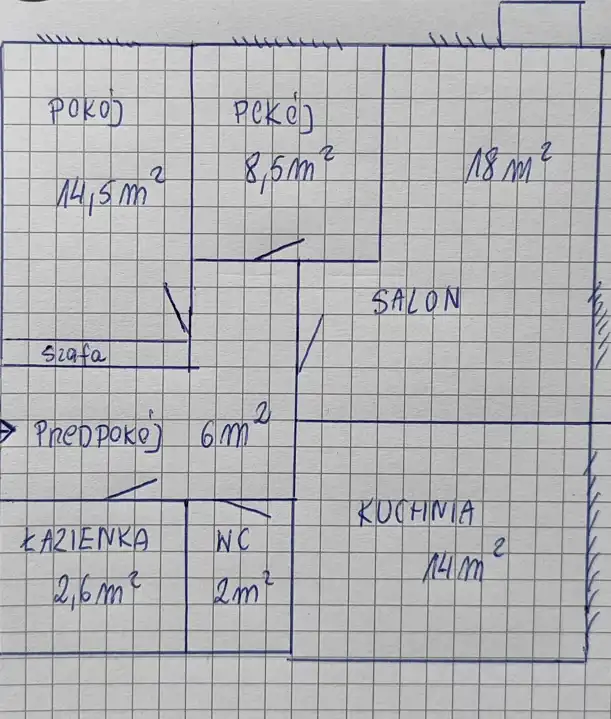 POKÓJ
14,5m²
POKÓJ
8,5m²
18m²
SALON
Szafa
PRZEDPOKÓJ 6m²
ŁAZIENKA
2,6m²
WC
2m²
KUCHNIA
14m²